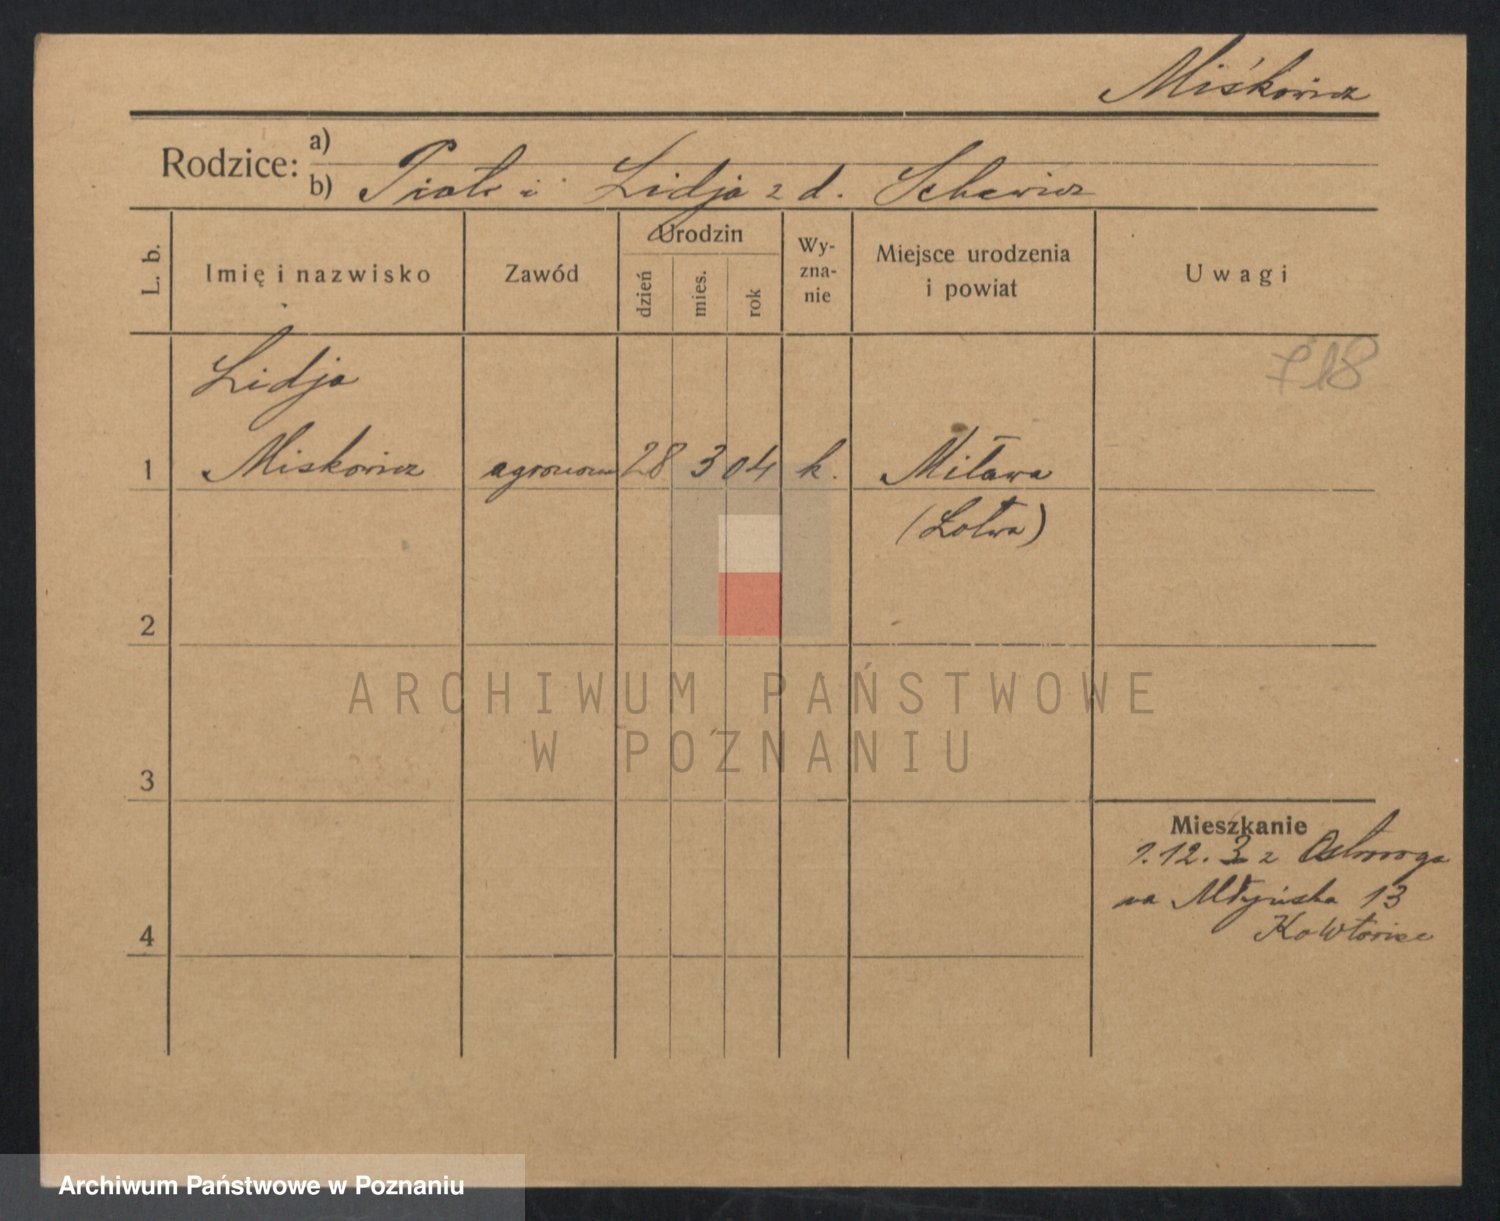 Miśkowicz
Rodzice: a)
b) Piotr i Lidja z d. Schewicz
L. b.
Imię i nazwisko
Zawód
Urodzin
dzień
mies.
rok
Wy-
zna-
nie
Miejsce urodzenia
i powiat
Uwagi
718
Lidja
1 Miskowicz agronom 28 3 04 k. Mitawa
(Łotwa)
2
3
4
Mieszkanie
1.12. 3 z Ostroroga
na Młyńska 13
ARCHIWUM PAŃSTWOWE
W POZNANIU
Archiwum Państwowe w Poznaniu